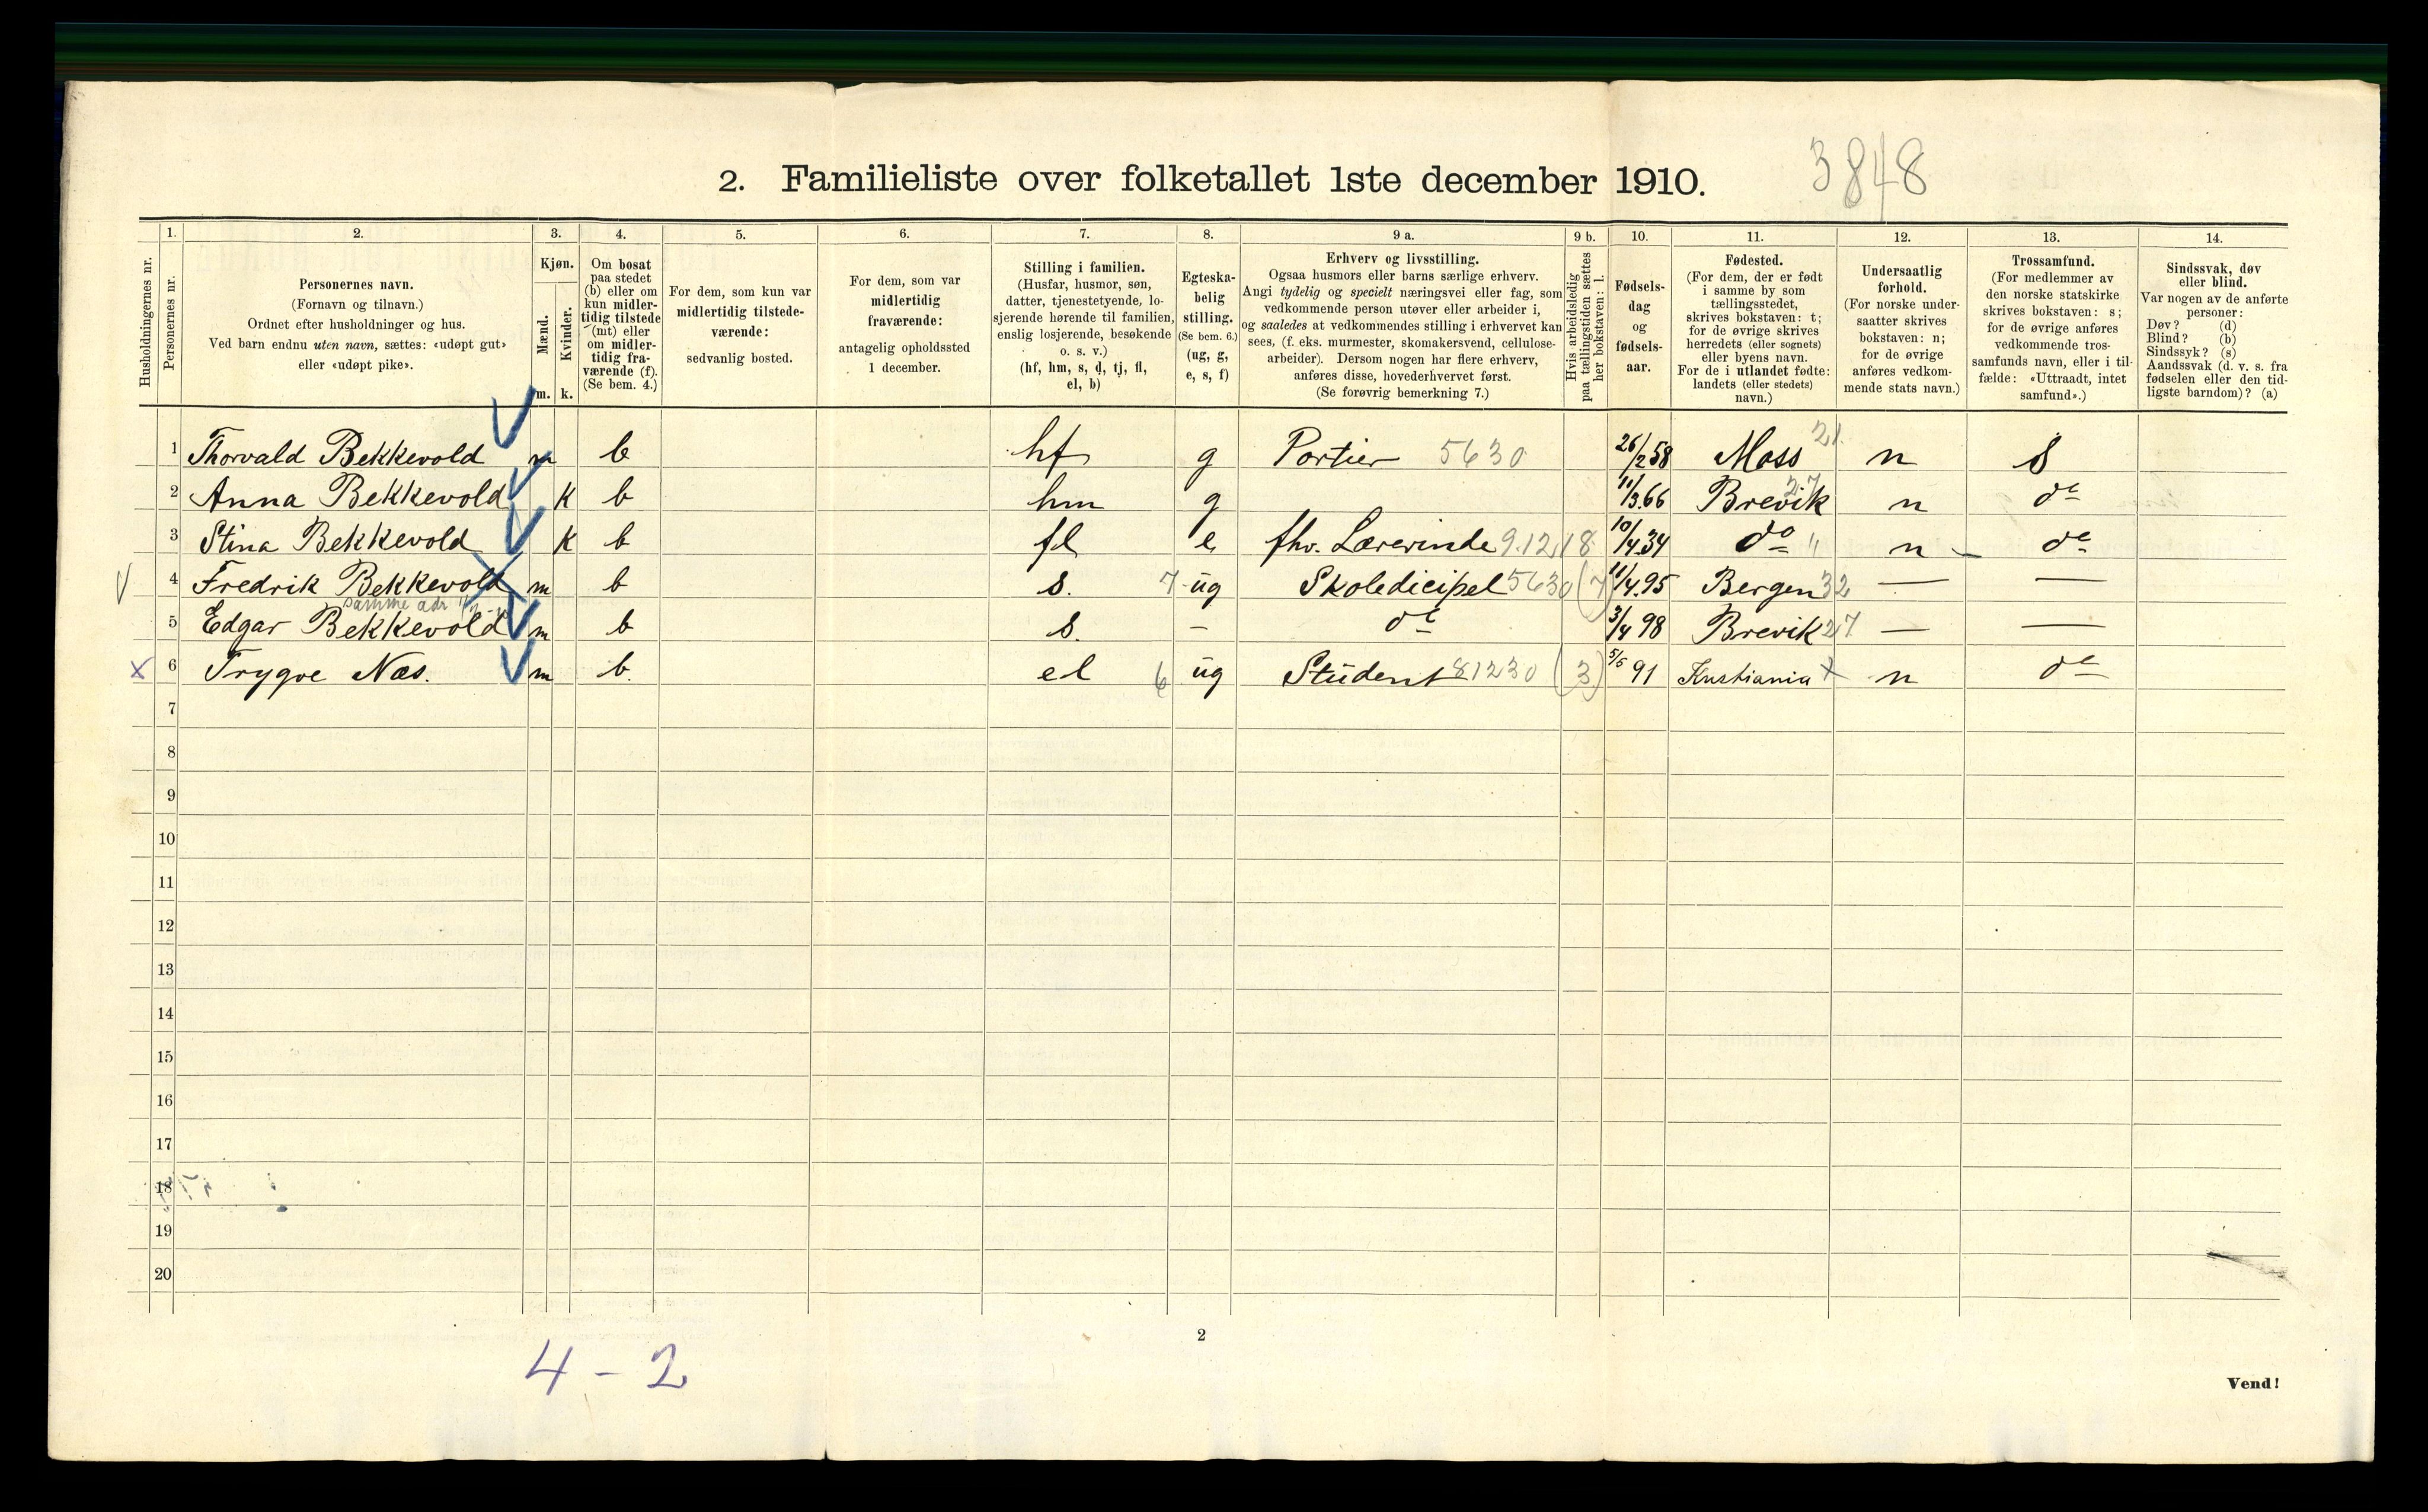 2. Familieliste over folketallet 1ste december 1910. 3848
Husholdningernes nr.
1. Personernes nr.
2. Personernes navn.
(Fornavn og tilnavn.)
Ordnet efter husholdninger og hus.
Ved barn endnu uten navn, sættes: «udøpt gut»
eller «udøpt pike».
3. Kjøn.
Mænd. m.
Kvinder. k.
4. Om bosat
paa stedet
(b) eller om
kun midler-
tidig tilstede
(mt) eller
om midler-
tidig fra-
værende (f).
(Se bem. 4.)
5. For dem, som kun var
midlertidig tilstede-
værende:
sedvanlig bosted.
6. For dem, som var
midlertidig
fraværende:
antagelig opholdssted
1 december.
7. Stilling i familien.
(Husfar, husmor, søn,
datter, tjenestetyende, lo-
sjerende hørende til familien,
enslig losjerende, besøkende
o. s. v.)
(hf, hm, s, d, tj, fl,
el, b)
8. Egteska-
belig
stilling.
(Se bem. 6.)
(ug, g,
e, s, f)
9 a. Erhverv og livsstilling.
Ogsaa husmors eller barns særlige erhverv.
Angi tydelig og specielt næringsvei eller fag, som
vedkommende person utøver eller arbeider i,
og saaledes at vedkommendes stilling i erhvervet kan
sees, (f. eks. murmester, skomakersvend, cellulose-
arbeider). Dersom nogen har flere erhverv,
anføres disse, hovederhvervet først.
(Se forøvrig bemerkning 7.)
9 b. Hvis arbeidsledig
paa tællingstiden sættes
her bokstaven: l.
10. Fødsels-
dag
og
fødsels-
aar.
11. Fødested.
(For dem, der er født
i samme by som
tællingsstedet,
skrives bokstaven: t;
for de øvrige skrives
herredets (eller sognets)
eller byens navn.
For de i utlandet fødte:
landets (eller stedets)
navn.)
12. Undersaatlig
forhold.
(For norske under-
saatter skrives
bokstaven: n;
for de øvrige
anføres vedkom-
mende stats navn.)
13. Trossamfund.
(For medlemmer av
den norske statskirke
skrives bokstaven: s;
for de øvrige anføres
vedkommende tros-
samfunds navn, eller i til-
fælde: «Uttraadt, intet
samfund».)
14. Sindssvak, døv
eller blind.
Var nogen av de anførte
personer:
Døv? (d)
Blind? (b)
Sindssyk? (s)
Aandssvak (d. v. s. fra
fødselen eller den tid-
ligste barndom)? (a)
1 Thorvald Bekkevold m b hf g Portier 5630 26/2 58 Moss 21 n s
2 Anna Bekkevold K b hm g 11/3.66 Brevik 27 n do
3 Stina Bekkevold K b fl e fhv. Lærerinde 9.12.18 10/4.34 do " n - do
4 Fredrik Bekkevold m b s. 7 ug Skoledicipel 5630 (7) 11/4.95 Bergen 32 — —
samme adr
5 Edgar Bekkevold m b s. – do 3/4 98 Brevik 27 — —
x 6 Trygve Næs. m b. el 6 ug Student 81230 (3) 5/5 91 Kristiania x n do
7
8
9
10
11
12
13
14
15
16
17
18
19
20
2
4 - 2
Vend!